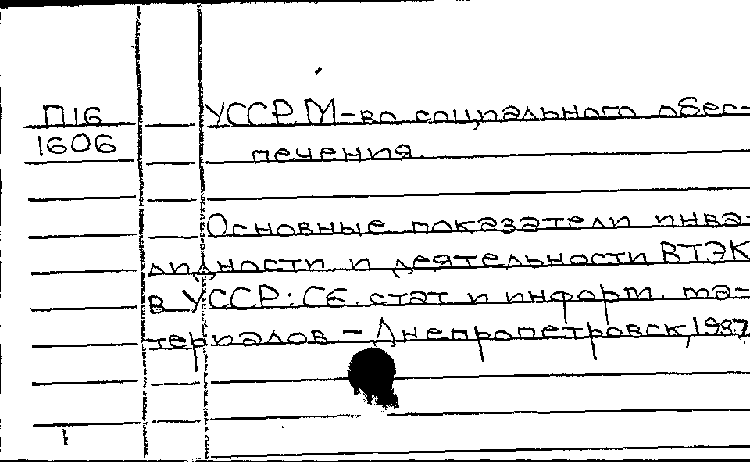 П16
1606
УССР. М-во социального обес-
печения.
Основные показатели инва-
лидности и деятельности ВТЭК
в УССР: Сб. стат и информ. ма-
териалов - Днепропетровск, 1987
1